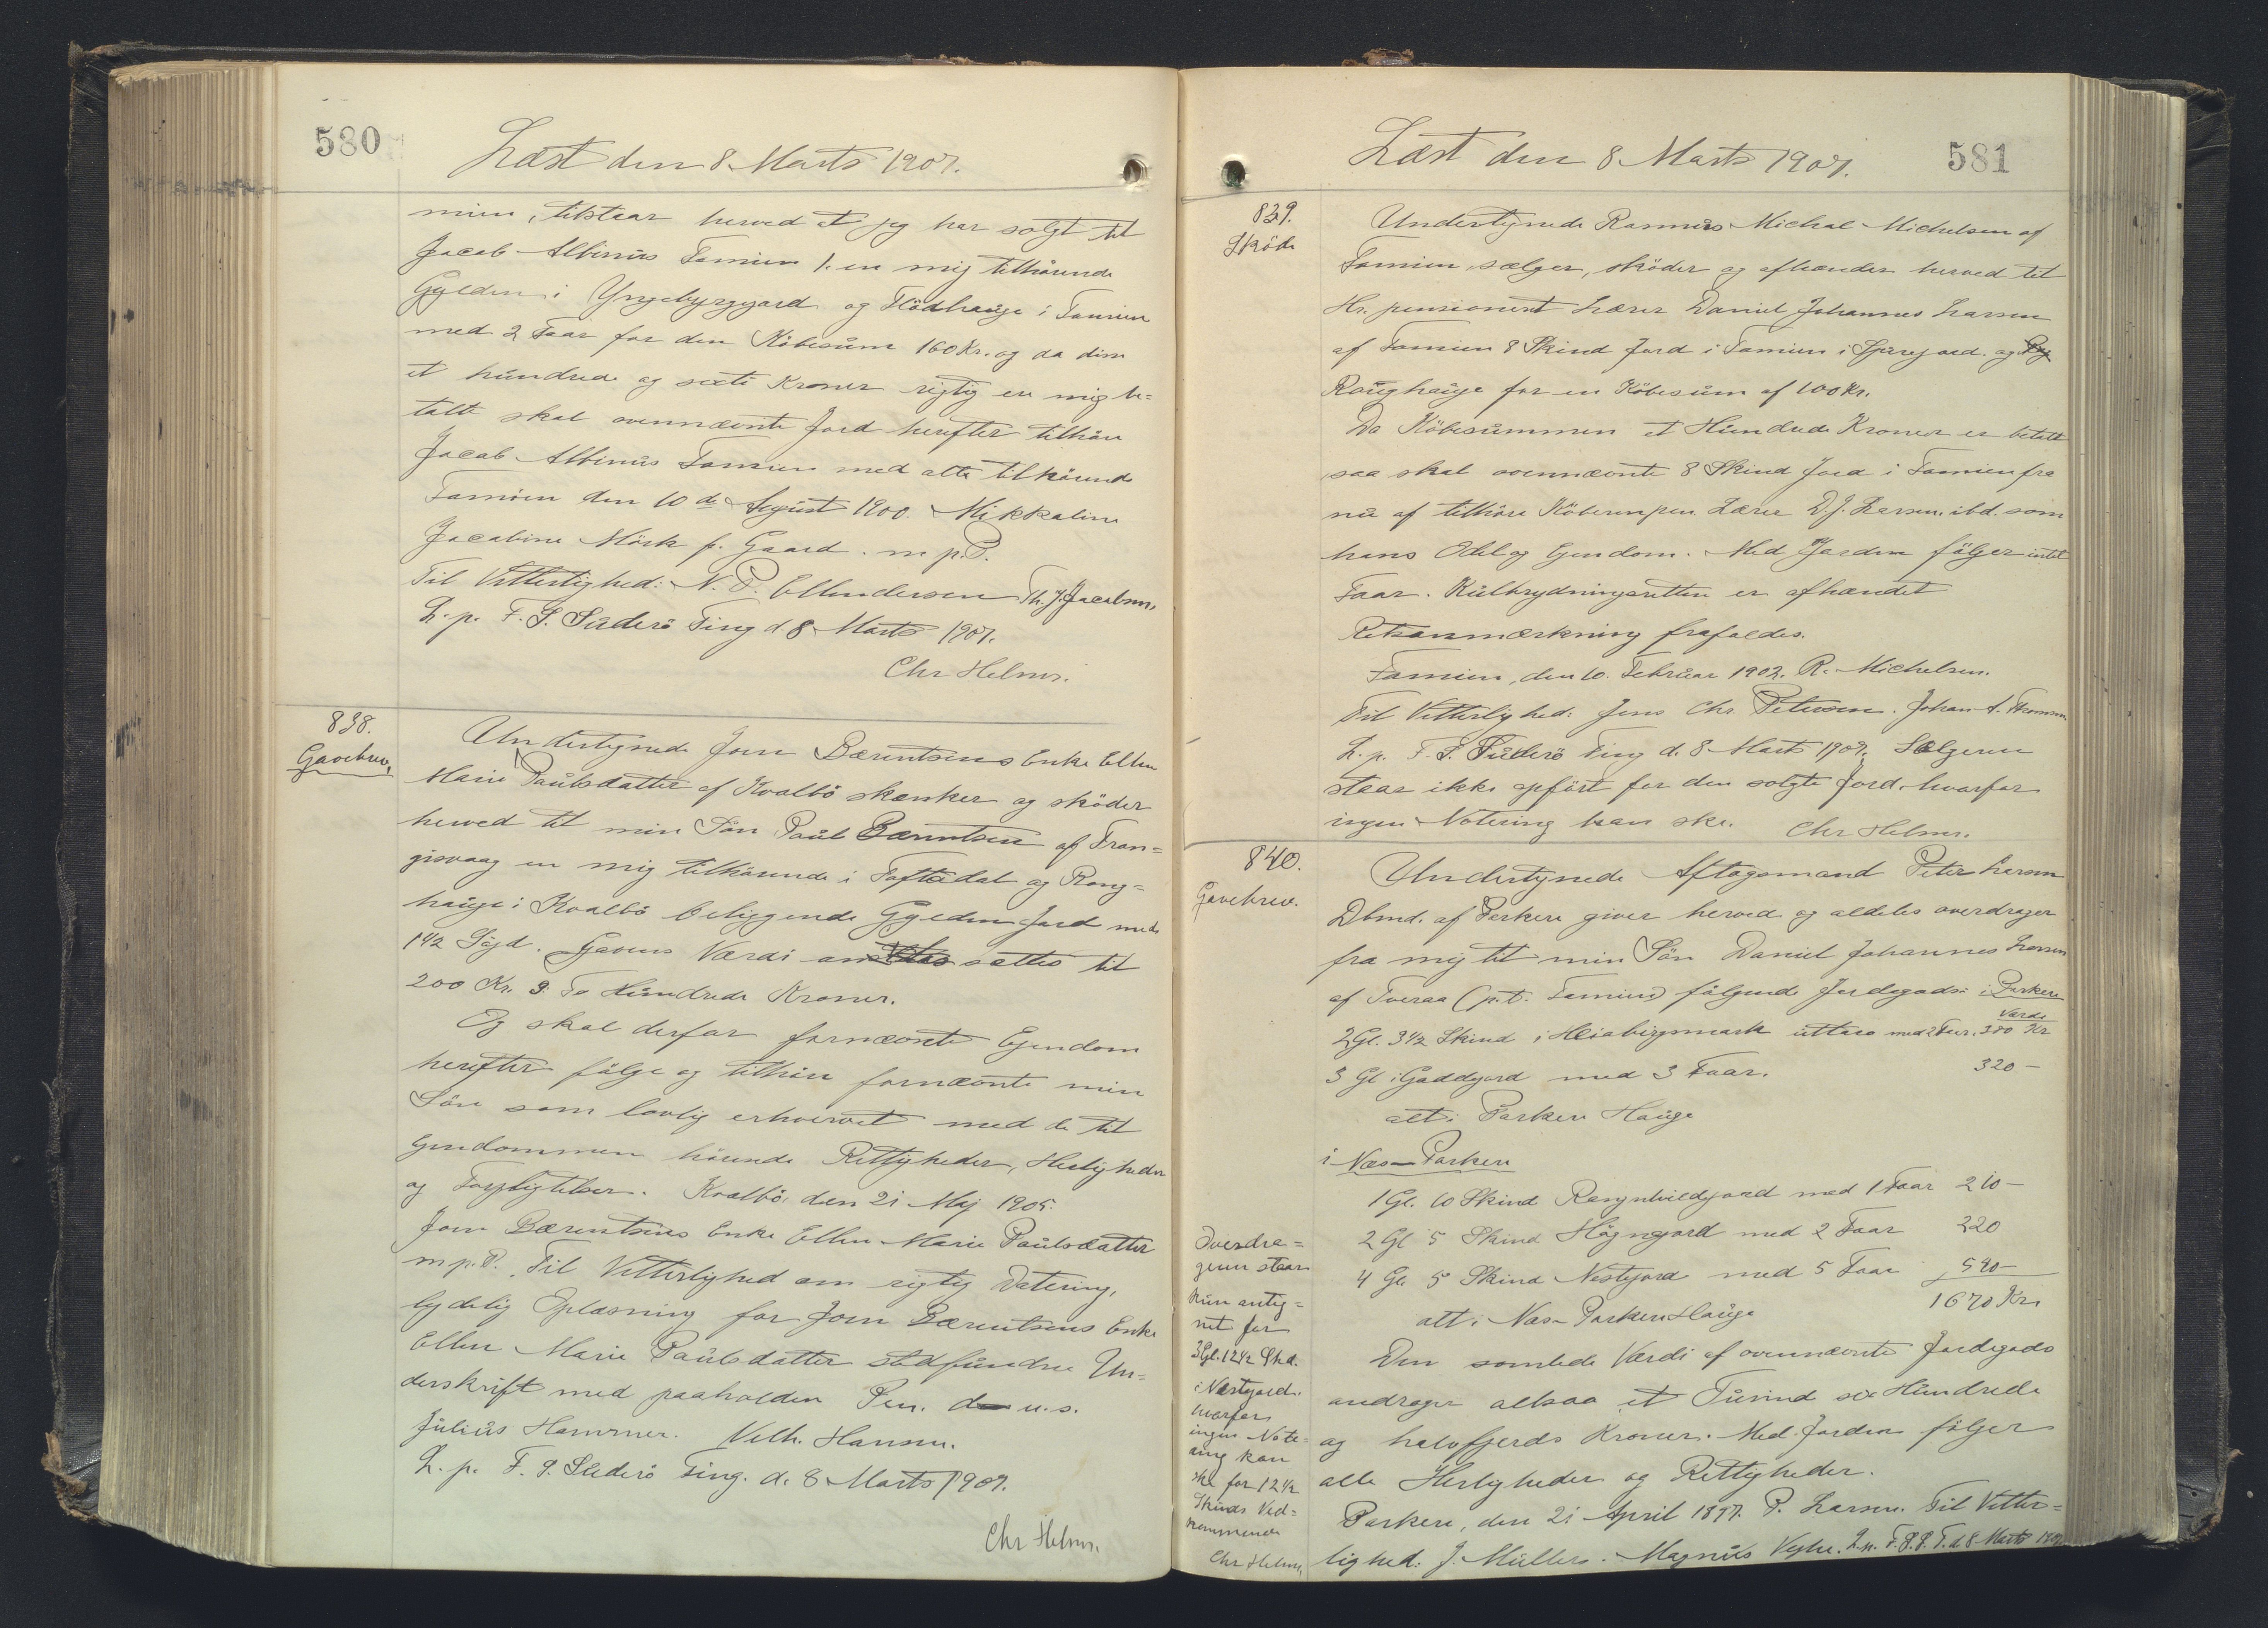 580
Læst den 8 Marts 1907.
mien, tilstaar herved at jeg har solgt til
Jacob Albinus Famien 1. en mig tilhørende
Gylden i Yngebyrgjord og Flödhauge i Famien
med 2 Faar for den Köbesum 160 Kr. og da disse
et hundrede og sexti Kroner rigtig er mig be-
talte skal ovennævnte Jord herefter tilhöre
Jacob Albinus Famien med alt tilhörende
Famien den 10de August 1900. Mikkaline
Jacobine Mörk f. Gaard. m.p.P.
Til Vitterlighed: N. P. Ellendersen Th. J. Jacobsen
L. p. F. S. Suderö Ting d 8 Marts 1907.
Chr Helms.
838.
Gavebrev.
Undertegnede Joen Bærentsens Enke Ellen
Marie Poulsdatter af Kvalbö skænker og sköder
herved til min Sön Poul Bærentsen af Tran-
gisvaag en mig tilhörende i Toftedal og Rong-
hauge i Kvalbö beliggende Gylden Jord med
1 1/2 Föjd. Gavens Værdi ansættes til
200 Kr. 9: To Hundrede Kroner.
Og skal derfor fornævnte Ejendom
herefter fölge og tilhöre fornævnte min
Sön som lovlig erhvervet med de til
Ejendommen hörende Rettigheder, Herligheder
og Forpligtelser. Kvalbö, den 21 Maj 1905.
Joen Bærentsens Enke Ellen Marie Poulsdatter
m.p.P. Til Vitterlighed om rigtig Datering,
lydelig Oplæsning for Joen Bærentsens Enke
Ellen Marie Poulsdatter stedfundne Un-
derskrift med paaholden Pen. u.s.
Julius Hammer. Vilh. Hansen.
L. p. F. S. Suderö Ting. d. 8 Marts 1907.
Chr Helms.
Læst den 8 Marts 1907.
581
839.
Sköde
Undertegnede Rasmus Michal Michelsen af
Famien, sælger, sköder og afhænder herved til
Hr. pensioneret Lærer Daniel Johannes Larsen
af Famien 8 Skind Jord i Famien i og
Raughauge for en Köbesum af 100 Kr.
Da Köbesummen et Hundrede Kroner er betalt
saa skal ovennævnte 8 Skind Jord i Famien fra
nu af tilhöre Köberen pen. Lærer D. J. Larsen ibd. som
hans Odel og Ejendom. Med Jorden fölger intet
Faar. Kulbrydningsretten er afhændet
Retsanmærkning frafaldes.
Famien, den 10. Februar 1902. R. Michelsen.
Til Vitterlighed: Jens Chr. Petersen. Johan A. Thomsen
L. p. F. S. Suderö Ting d. 8 Marts 1907. Sælgeren
staar ikke opfört for den solgte Jord, hvorfor
ingen Notering kan ske. Chr Helms.
840.
Gavebrev.
Undertegnede Aftagsmand Peter Larsen
Dbmd. af Porkere giver herved og aldeles overdrager
fra mig til min Sön Daniel Johannes Larsen
af Tveraa (p.t. Famien) fölgende Jordegods: i Porkere
Værdi
2 Gl. 3 1/2 Skind i Heiabirgsmark uttaro med 2 Faar. 300 Kr
3 Gl i Gaddgord med 3 Faar. 320 -
alt i Porkere Hauge
i Næs-Porkere
1 Gl. 10 Skind Ragnhildgjord med 1 Faar 210 -
2 Gl 5 Skind Högnegjord med 2 Faar 220
4 Gl. 5 Skind Nestgjord med 5 Faar 590 -
alt i Næs-Porkere Hauge 1670 Kr.
Den samlede Værdi af ovennævnte Jordegods
andrager altsaa et Tusind sex Hundrede
og halvfjerds Kroner. Med Jorden fölger
alle Herligheder og Rettigheder.
Porkere, den 21 April 1897. P. Larsen. Til Vitter-
lighed: J. Müller. Magnus Vegbe. L. p. F. S. S. T. d 8 Marts 1907
Overdra-
geren staar
kun antig-
net for
3 Gl. 12 1/2 Skd.
i Nestgjord.
hvorfor
ingen Note-
ring kan
ske for 12 1/2
Skinds Ved-
kommende
Chr Helms.